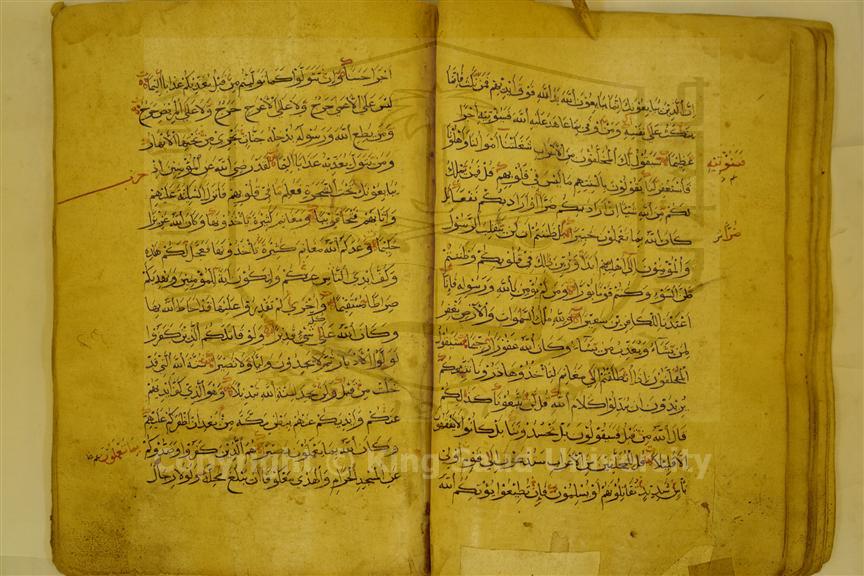 ان الذين يبايعونك انما يبايعون الله يد الله فوق ايديهم فمن نكث فانما
ينكث على نفسه ومن اوفى بما عاهد عليه الله فسيؤتيه اجرا
عظيما سيقول لك المخلفون من الاعراب شغلتنا اموالنا واهلونا
فاستغفر لنا يقولون بالسنتهم ما ليس في قلوبهم قل فمن يملك
لكم من الله شيئا ان اراد بكم ضرا او اراد بكم نفعا بل
كان الله بما تعملون خبيرا بل ظننتم ان لن ينقلب الرسول
والمؤمنون الى اهليهم ابدا وزين ذلك في قلوبكم وظننتم
ظن السوء وكنتم قوما بورا ومن لم يؤمن بالله ورسوله فانا
اعتدنا للكافرين سعيرا ولله ملك السموات والارض يغفر
لمن يشاء ويعذب من يشاء وكان الله غفورا رحيما سيقول
المخلفون اذا انطلقتم الى مغانم لتاخذوها ذرونا نتبعكم
يريدون ان يبدلوا كلام الله قل لن تتبعونا كذلكم
قال الله من قبل فسيقولون بل تحسدوننا بل كانوا لا يفقهون
الا قليلا قل للمخلفين من الاعراب ستدعون الى قوم اولي
باس شديد تقاتلونهم او يسلمون فان تطيعوا يؤتكم الله
فسنؤتيه
ضرا
اجرا حسنا وان تتولوا كما توليتم من قبل يعذبكم عذابا اليما
ليس على الاعمى حرج ولا على الاعرج حرج ولا على المريض حرج
ومن يطع الله ورسوله يدخله جنات تجري من تحتها الانهار
ومن يتول يعذبه عذابا اليما لقد رضي الله عن المؤمنين اذ
يبايعونك تحت الشجرة فعلم ما في قلوبهم فانزل السكينة عليهم
واثابهم فتحا قريبا ومغانم كثيرة ياخذونها وكان الله عزيزا
حكيما وعدكم الله مغانم كثيرة تاخذونها فعجل لكم هذه
وكف ايدي الناس عنكم ولتكون اية للمؤمنين ويهديكم
صراطا مستقيما واخرى لم تقدروا عليها قد احاط الله بها
وكان الله على كل شيء قديرا ولو قاتلكم الذين كفروا
لولوا الادبار ثم لا يجدون وليا ولا نصيرا سنة الله التي قد
خلت من قبل ولن تجد لسنة الله تبديلا وهو الذي كف ايديهم
عنكم وايديكم عنهم ببطن مكة من بعد ان اظفركم عليهم
وكان الله بما يعملون بصيرا هم الذين كفروا وصدوكم
عن المسجد الحرام والهدي معكوفا ان يبلغ محله ولولا رجال
حزب
بما تعملون
Copyright © King Saud University